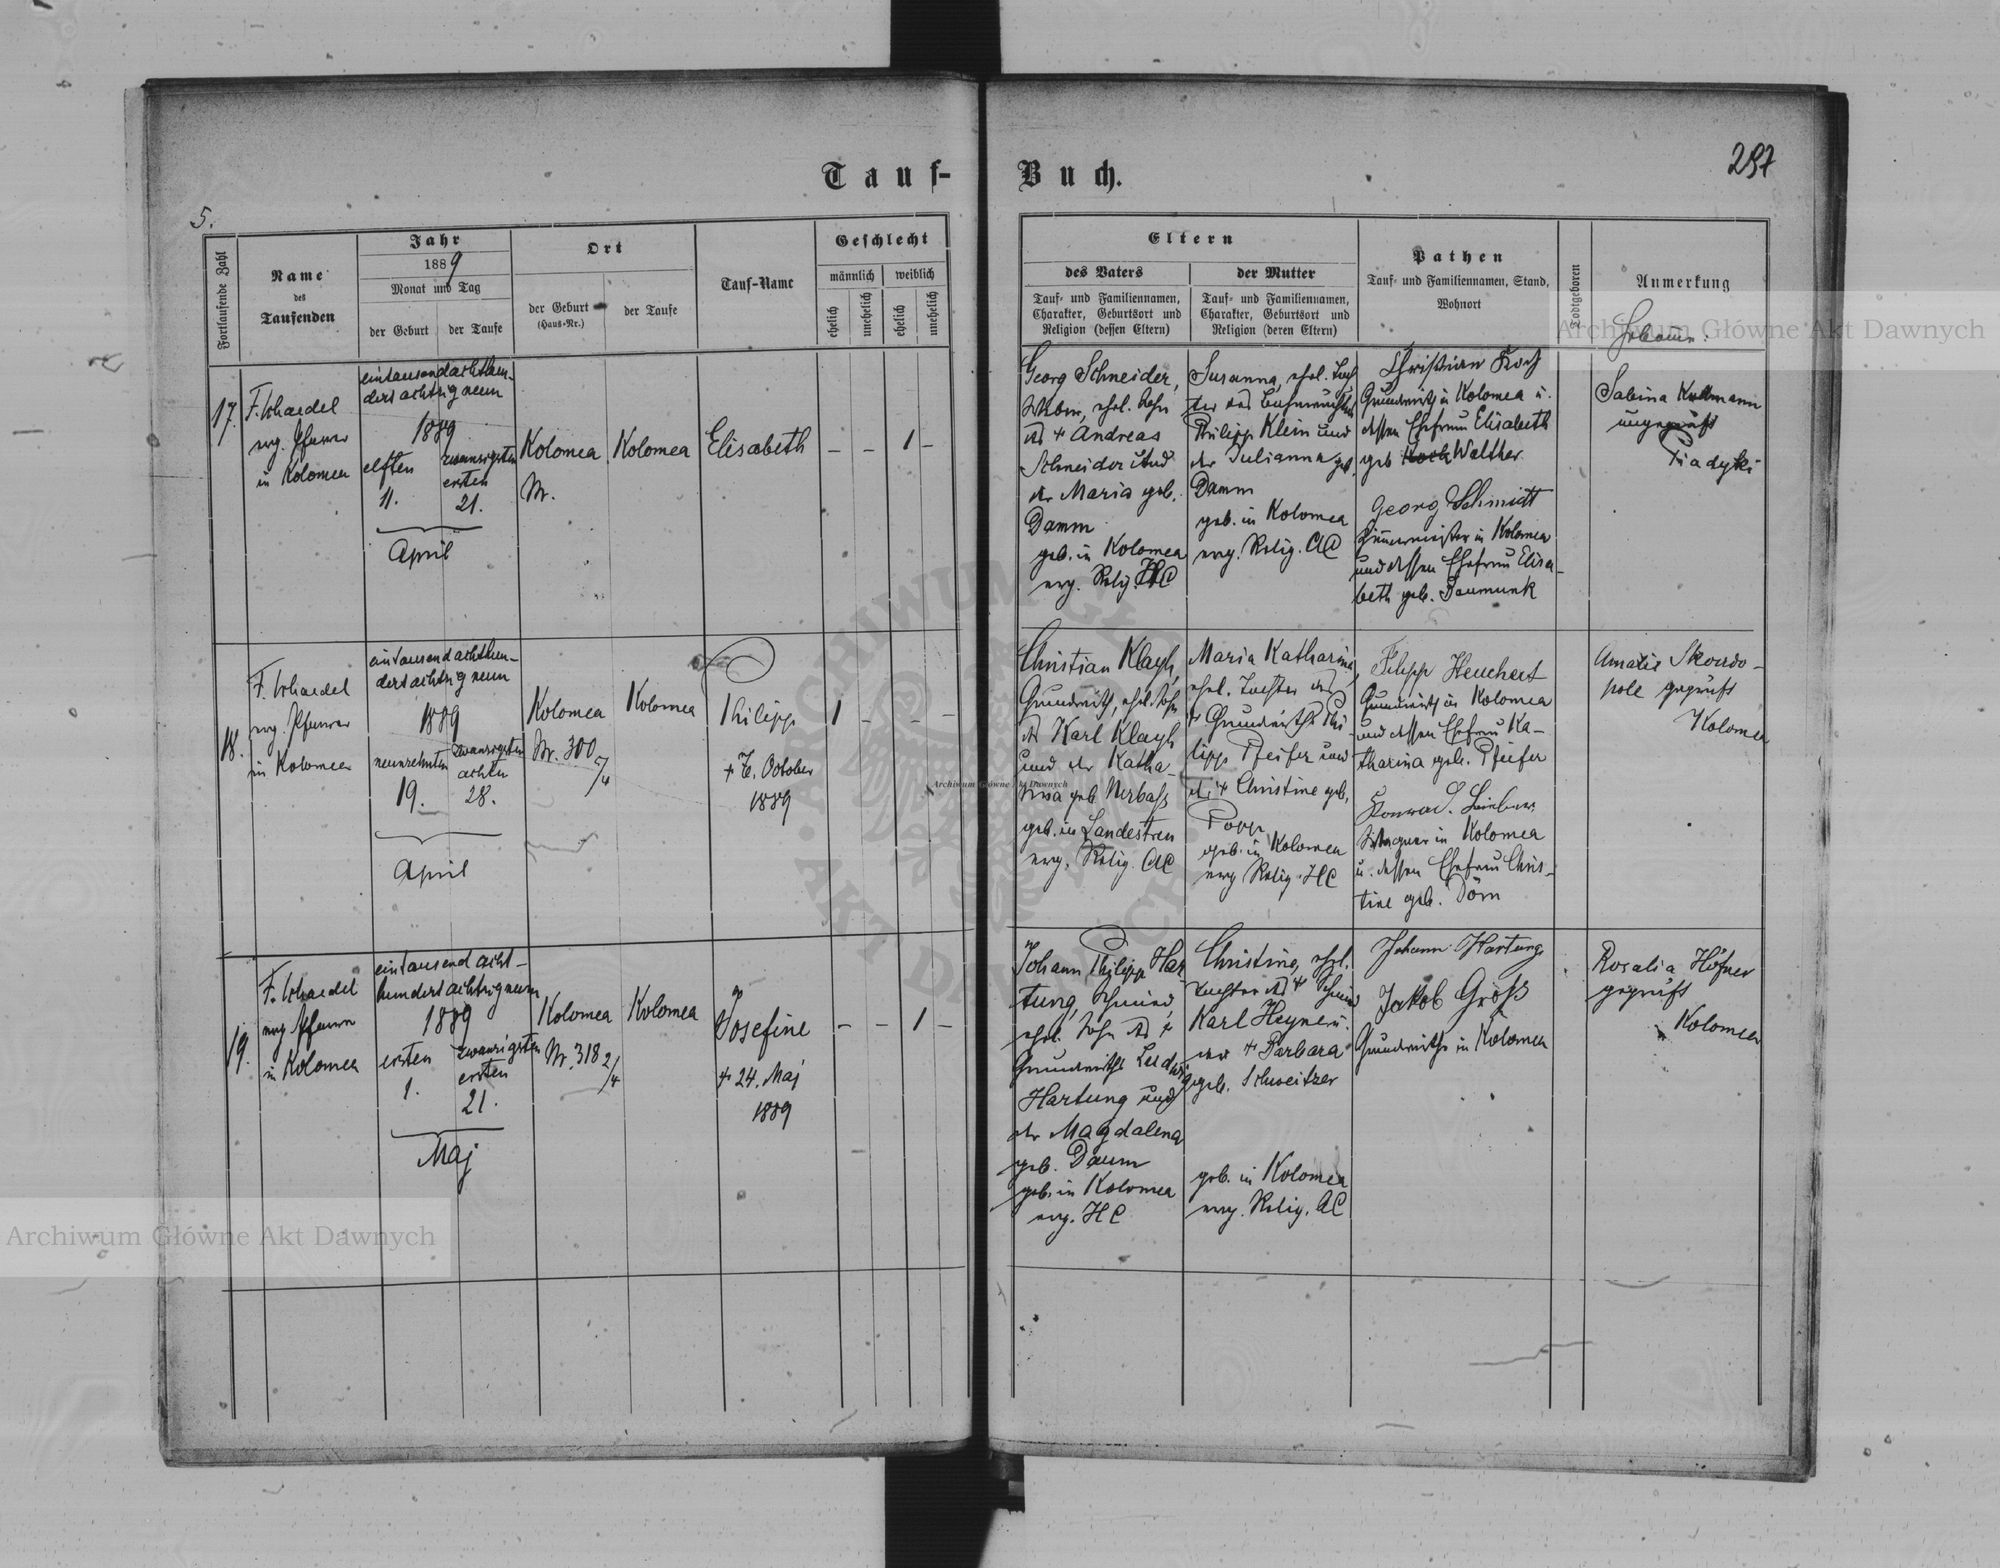 Tauf-Buch.
297
5.
Fortlaufende Zahl
Name
des
Taufenden
Jahr
1889
Monat und Tag
der Geburt
der Taufe
Ort
der Geburt
(Haus-Nr.)
der Taufe
Tauf-Name
Geschlecht
männlich
weiblich
ehelich
unehelich
ehelich
unehelich
Eltern
des Vaters
Tauf- und Familiennamen,
Charakter, Geburtsort und
Religion (dessen Eltern)
der Mutter
Tauf- und Familiennamen,
Charakter, Geburtsort und
Religion (deren Eltern)
Pathen
Tauf- und Familiennamen, Stand,
Wohnort
Todtgeboren
Anmerkung
Hebamme:
17.
evg. Pfarrer
in Kolomea
eintausendachthun-
dertachtzigneun
1889
elften
11.
zwanzigsten
ersten
21.
April
Kolomea
Nr.
Kolomea
Elisabeth
– – 1 –
Georg Schneider,
Weber, ehel. Sohn
des + Andreas
Schneider und
der Maria geb.
Damm
geb. in Kolomea
evg. Relig. HC
Susanna, ehel. Toch
ter des
Philipp Klein und
der Julianna geb.
Damm
geb. in Kolomea
evg. Relig. AC
Christian Koch
Grundwirth in Kolomea u.
dessen Ehefrau Elisabeth
geb. Koch Walther
Georg Schmidt
Zimmermeister in Kolomea
und dessen Ehefrau Elisa-
beth geb. Daumunk
Sabina Kullmann
ungeprüft
Piadyki
18.
evg. Pfarrer
in Kolomea
eintausendachthun-
dertachtzigneun
1889
neunzehnten
19.
zwanzigsten
achten
28.
April
Kolomea
Nr. 300
Kolomea
Philipp
October
1889
1 – – –
Christian Klagh,
Grundwirth, ehel. Sohn
des Karl Klagh
und der Katha-
rina geb.
geb. in Landestreu
evg. Relig. AC
Maria Katharina,
ehel. Tochter des
+ Grundwirths Phi-
lipp Pfeifer und
der + Christine geb.
Popp
geb. in Kolomea
evg Relig. HC
Filipp Heuchert
Grundwirth in Kolomea
und dessen Ehefrau Ka-
tharina geb. Pfeifer
Konrad
Wagner in Kolomea
u. dessen Ehefrau Chris-
tine geb. Dörn
Amalie Skowdo-
pole geprüft
Kolomea
19.
evg. Pfarrer
in Kolomea
eintausend acht-
hundertachtzigneun
1889
ersten
1.
zwanzigsten
ersten
21.
Maj
Kolomea
Nr. 318 2/4
Kolomea
Josefine
+ 24. Maj
1889
– – 1 –
Johann Philipp Har
tung, Schmied,
ehel. Sohn des +
Grundwirths Ludwig
Hartung und
der Magdalena
geb. Daum
geb. in Kolomea
evg. HC
Christine, ehel.
Tochter des + Schmied
Karl Heyne u.
der + Barbara
geb. Schweitzer
geb. in Kolomea
evg. Relig. AC
Johann Hartung
Jakob Groß
Grundwirthe in Kolomea
Rosalia Höfner
geprüft
Kolomea
Archiwum Główne Akt Dawnych
Archiwum Główne Akt Dawnych
Archiwum Główne Akt Dawnych